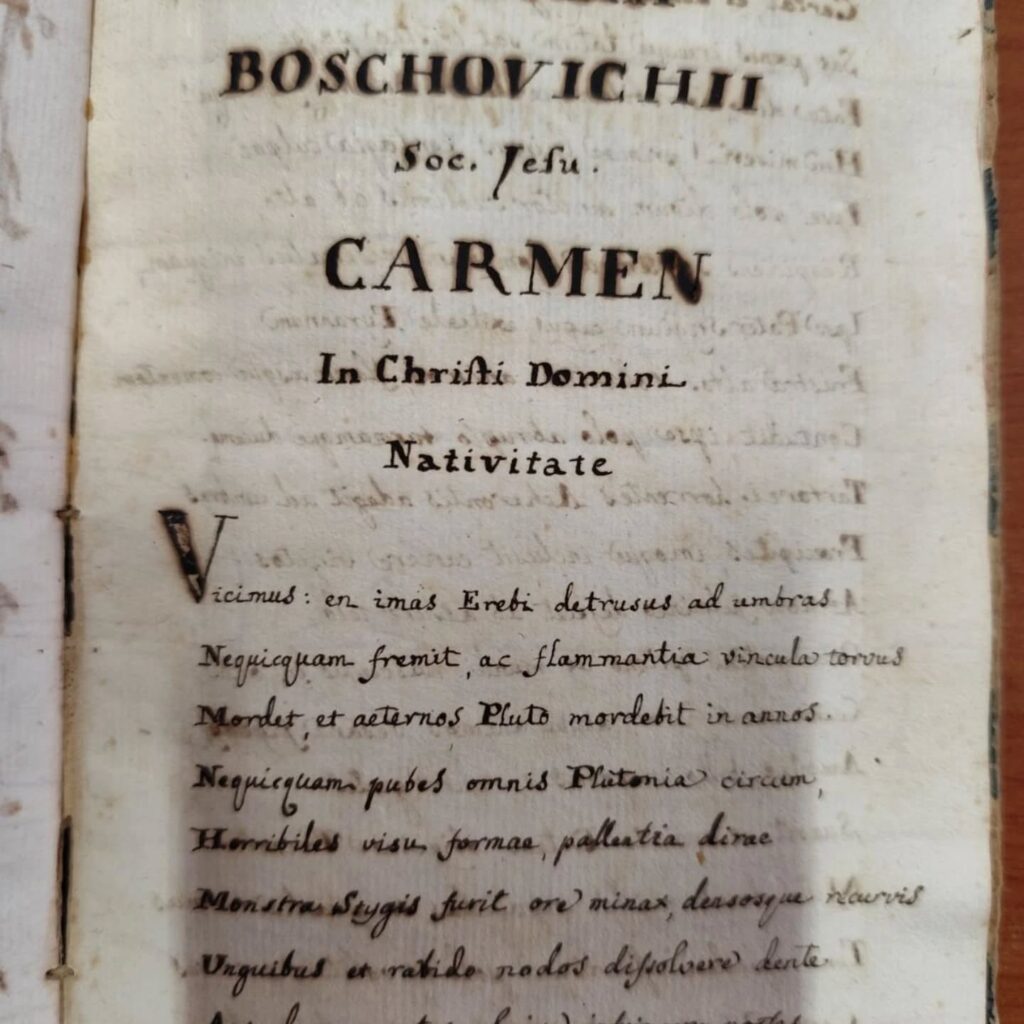 BOSCHOVICHII
Soc. Jesu.
CARMEN
In Christi Domini
Nativitate
Vicimus: en imas Erebi detrusus ad umbras
Nequicquam fremit, ac flammantia vincula torvus
Mordet, et aeternos Pluto mordebit in annos.
Nequicquam pubes omnis Plutonia circum,
Horribiles visu formae, pallentia dirae
Monstra Stygis furit ore minax, densosque recurvis
Unguibus et rabido nodos dissolvere dente